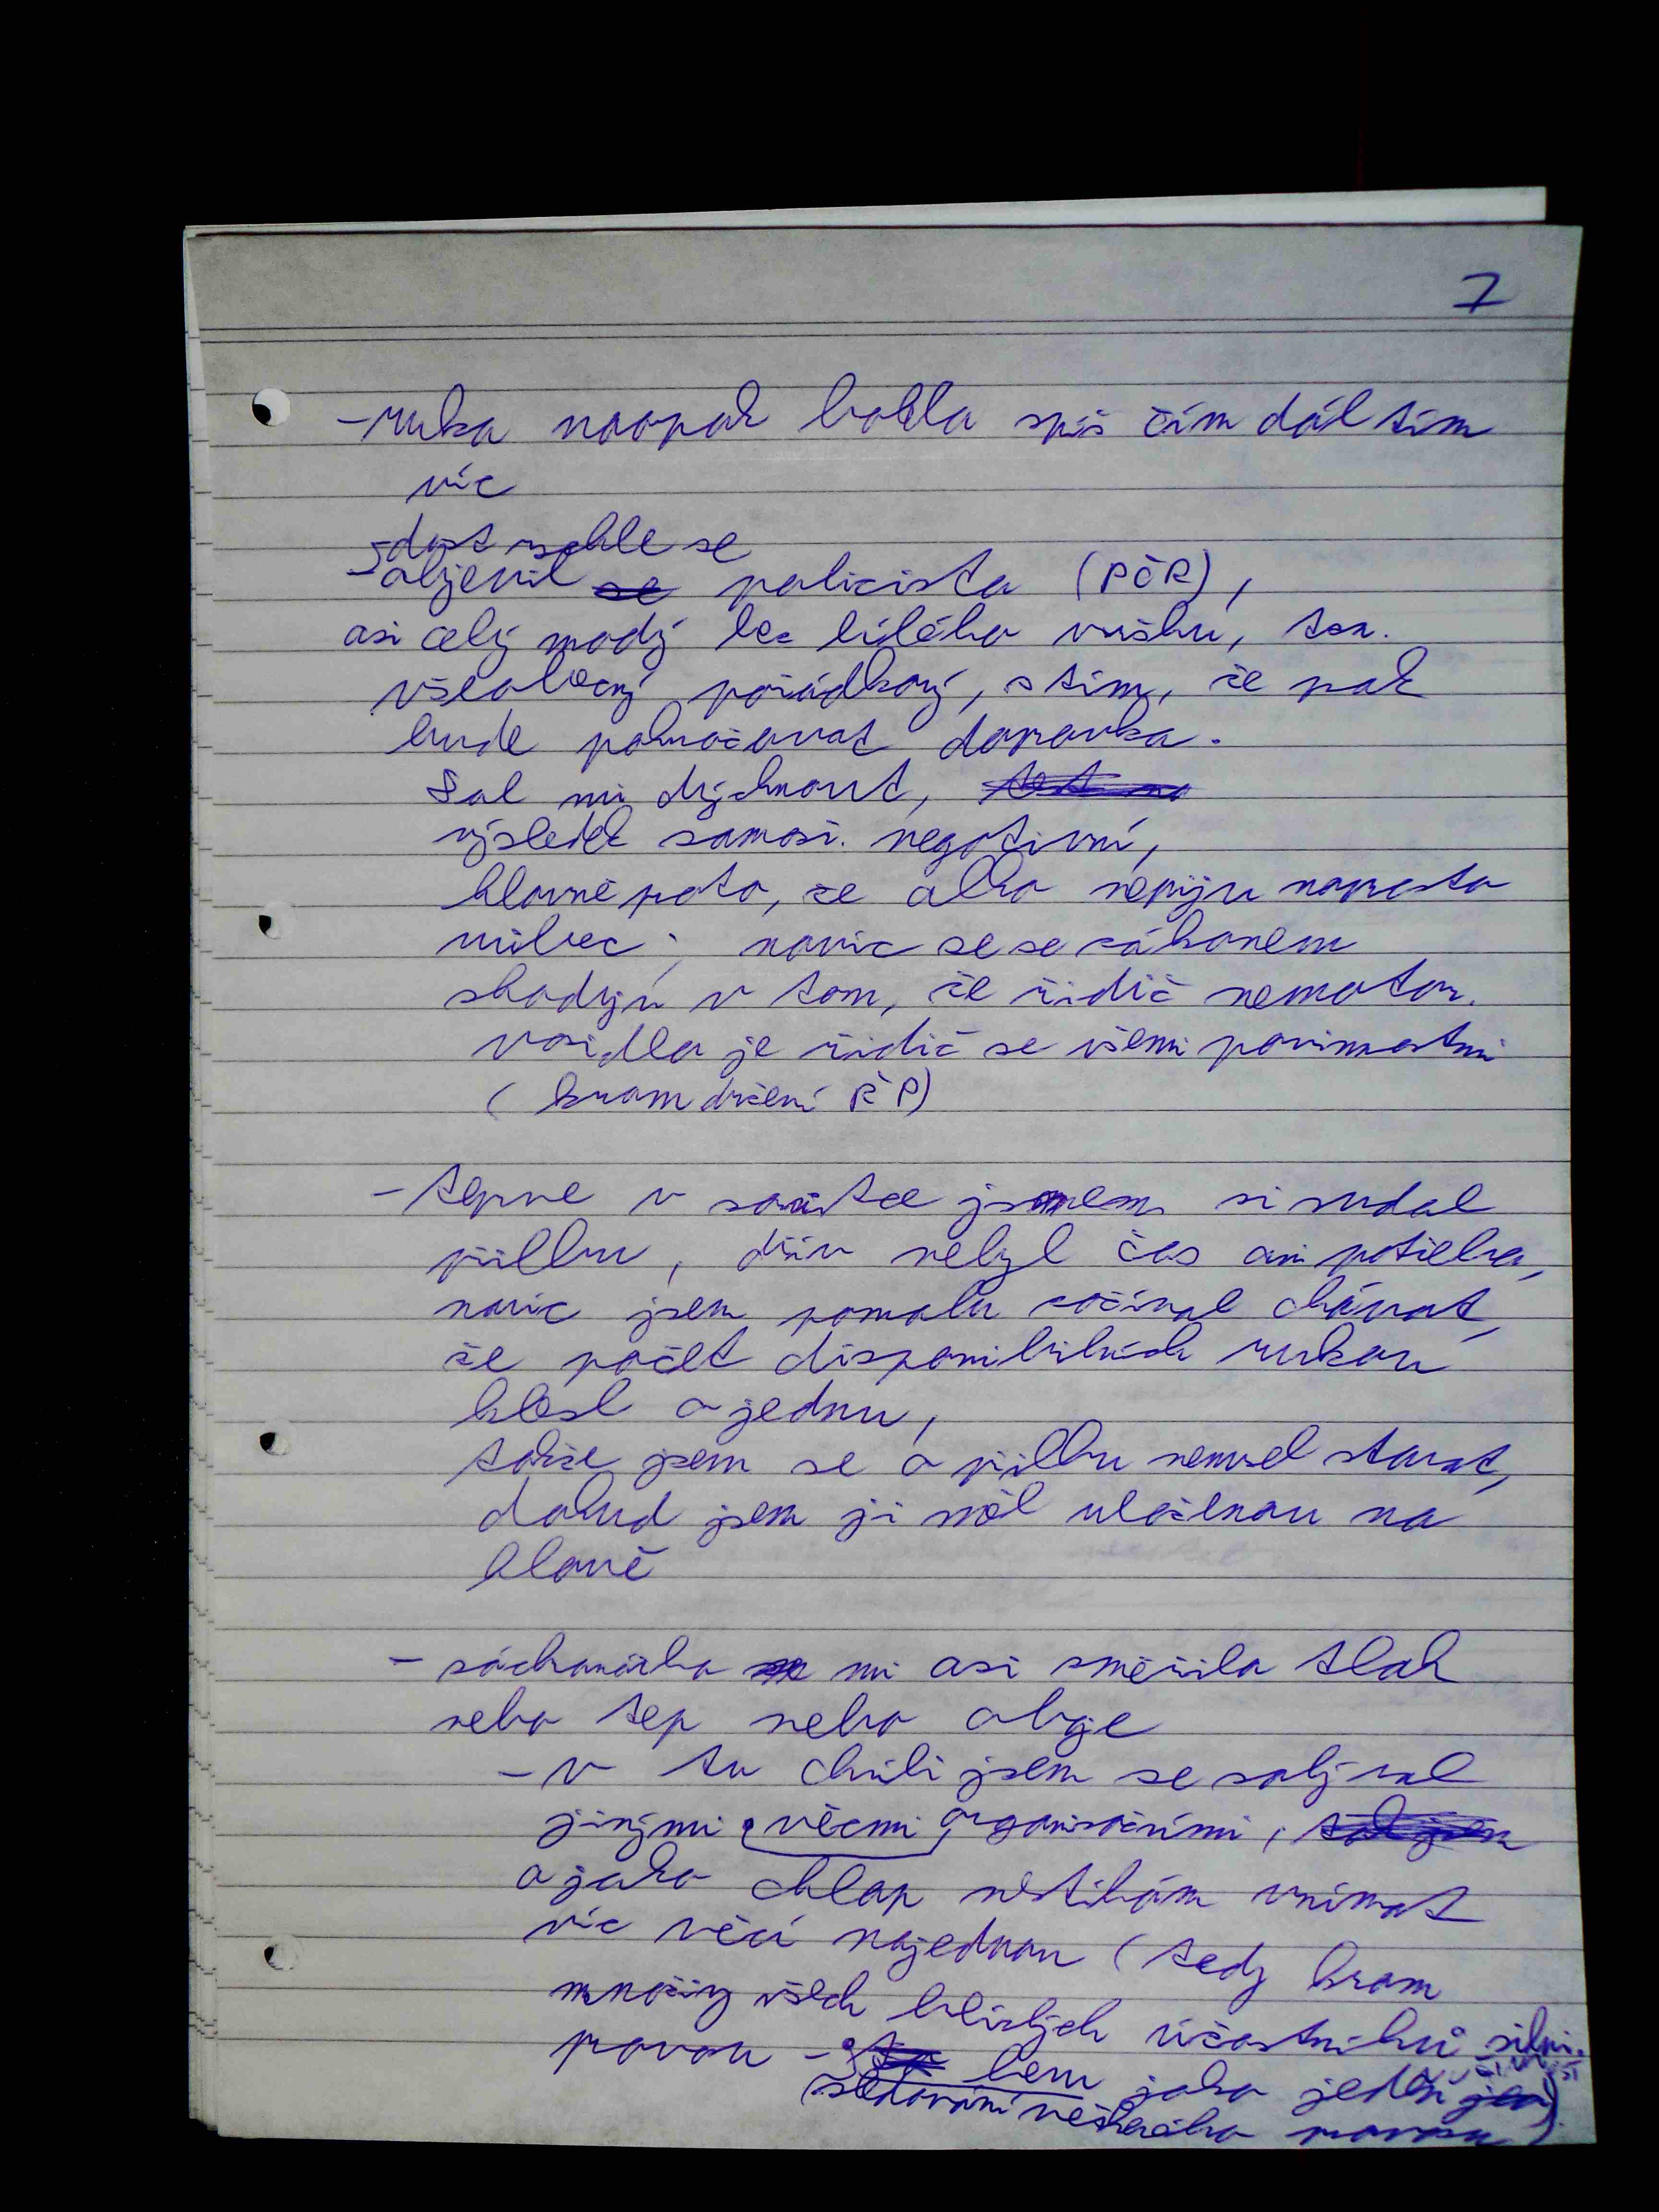 7
- ruka naopak bolela spíš čím dál tím
víc
dost rychle se
- objevil se policista (PČR),
asi celý modrý bez bílého vršku, tzn.
všeobecný pořádkový, s tím, že pak
bude pokračovat dopravka.
Dal mi dýchnout,
výsledek samoz. negativní,
hlavně proto, že alko nepiju naprosto
vůbec; navíc se se zákonem
shoduju v tom, že řidič nemotor.
vozidla je řidič se všemi povinnostmi
(krom držení ŘP)
- teprve v sanitce jsem si sundal
přilbu, dřív nebyl čas ani potřeba,
navíc jsem pomalu začínal chápat,
že počet disponibilních rukou
klesl o jednu,
takže jsem se o přilbu nemusel starat,
dokud jsem ji měl uloženou na
hlavě
- záchranářka mi asi změřila tlak
nebo tep nebo oboje
- v tu chvíli jsem se zabýval
jinými věcmi organizačními,
a jako chlap nestíhám vnímat
víc věcí najednou (tedy krom
množiny všech blízkých účastníků silni.
provozu - beru jako jednu
(sledování veškerého provozu)